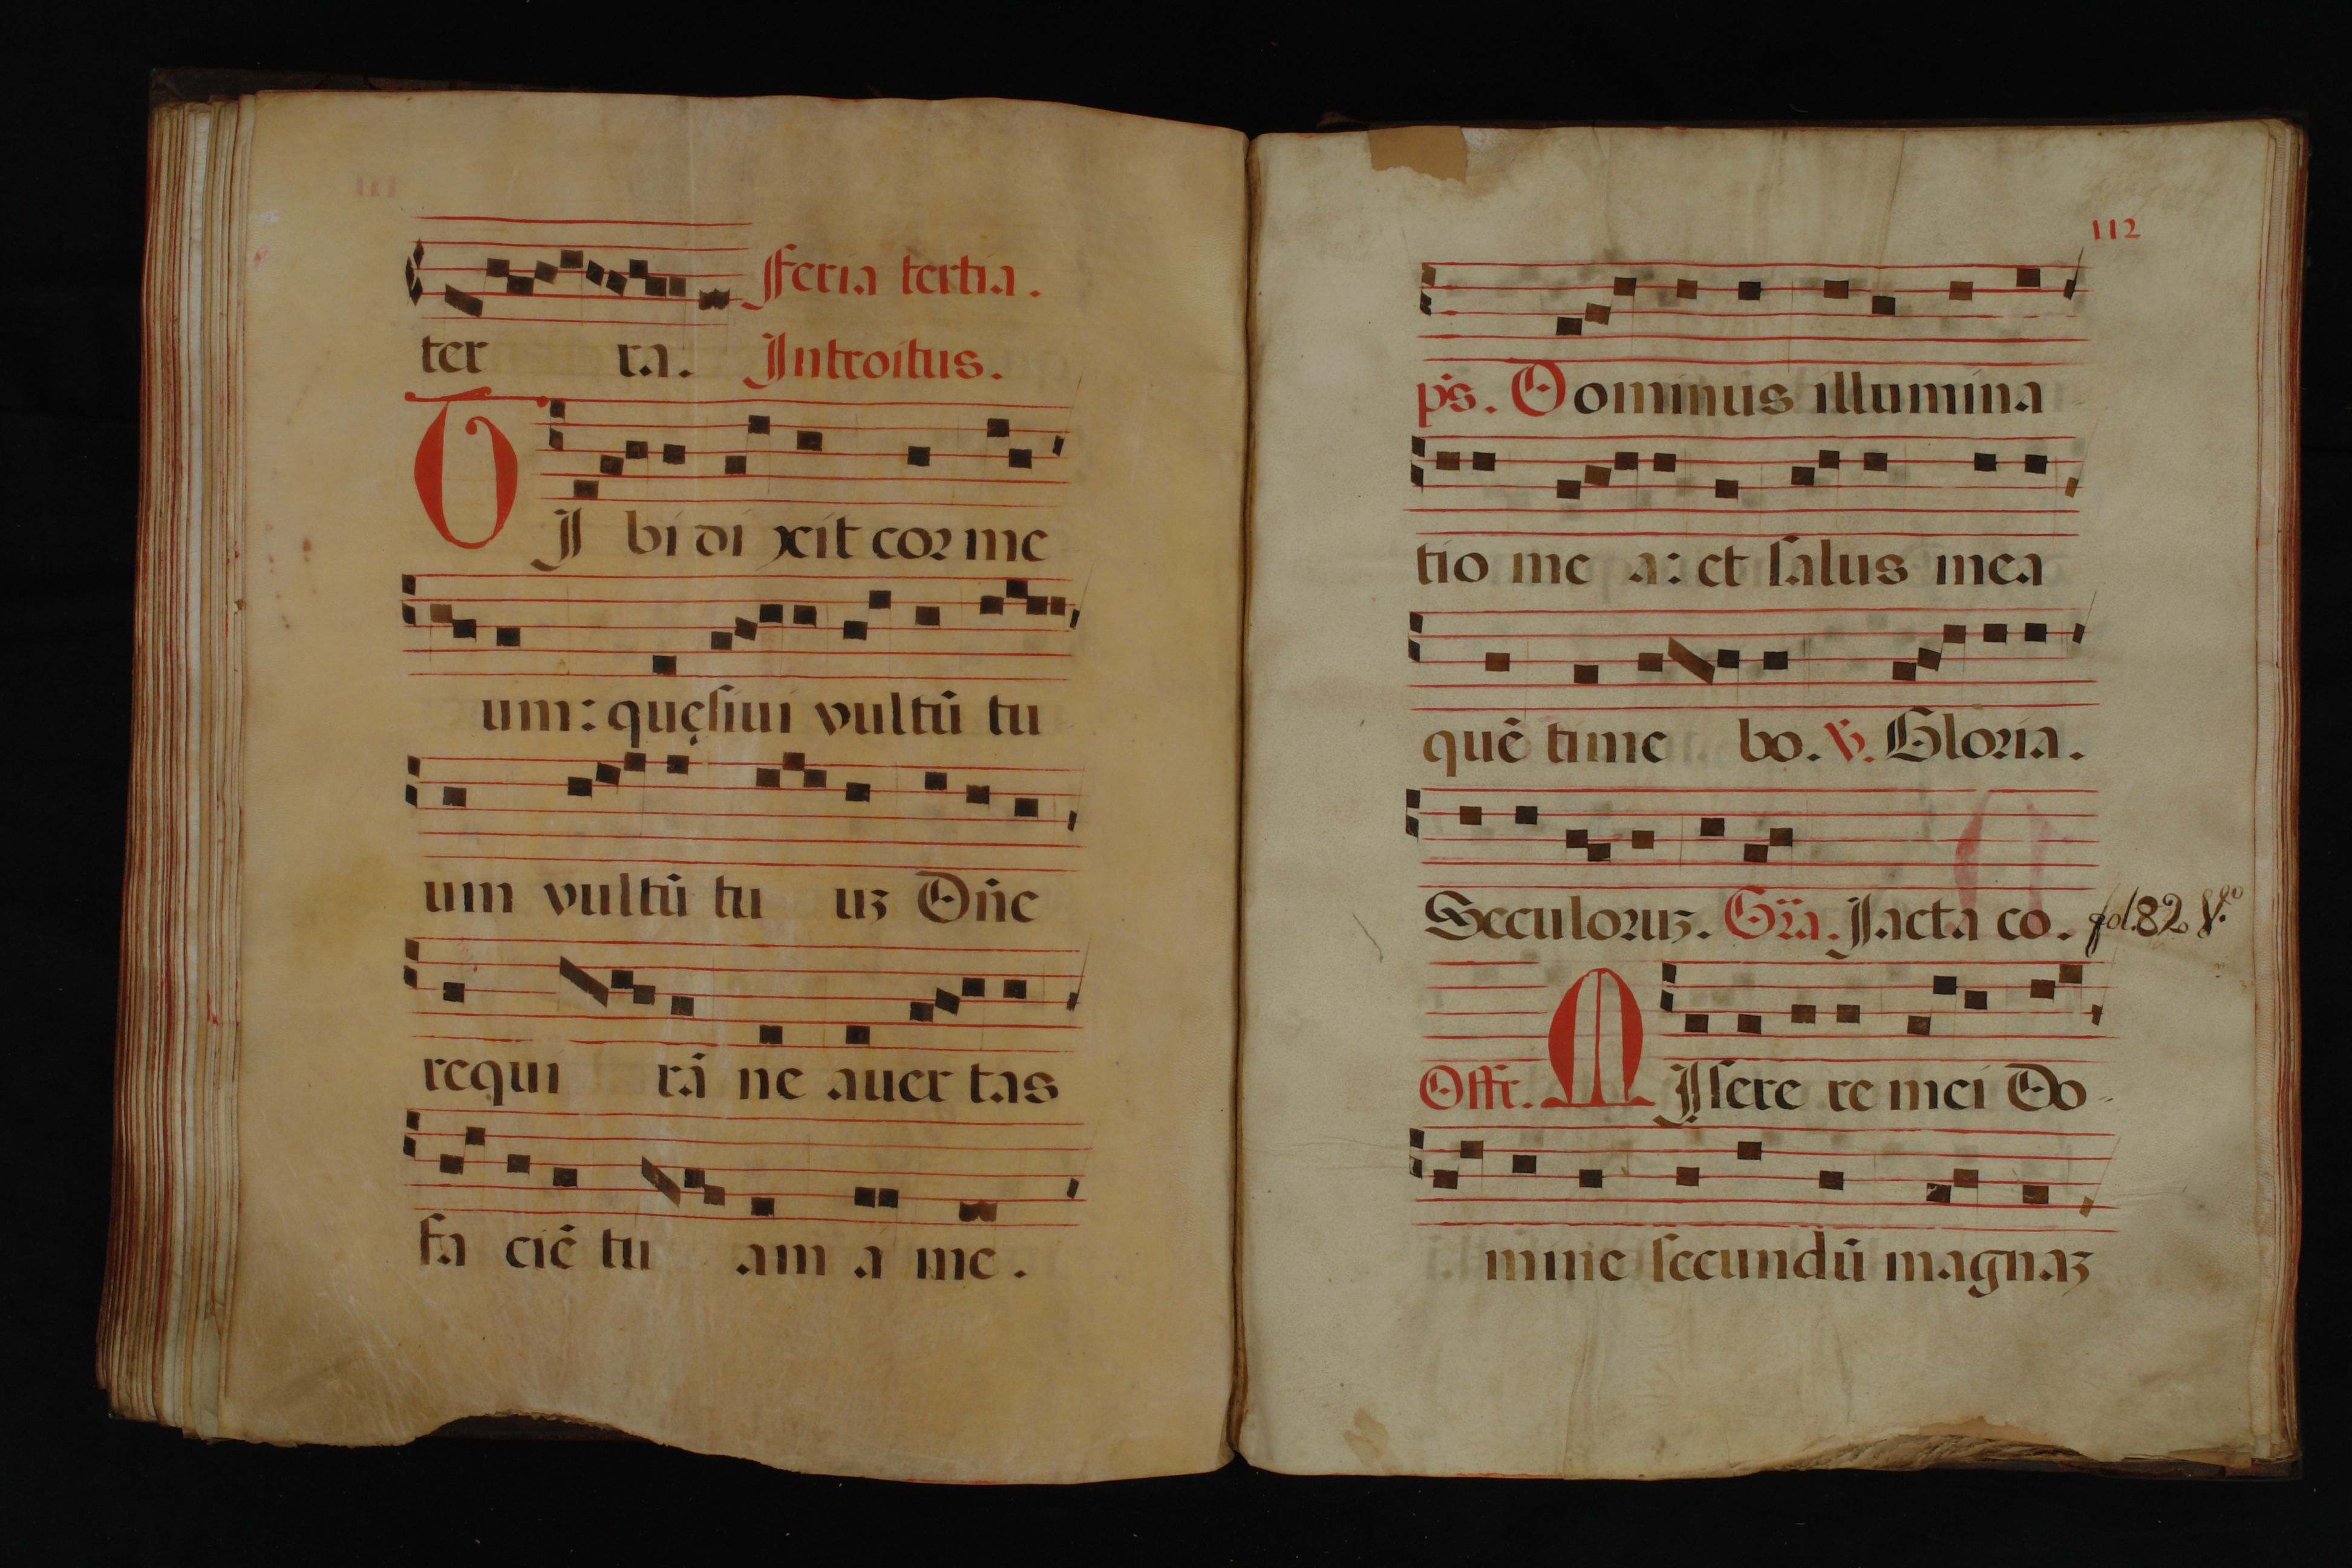 Feria tertia.
ter ra. Introitus.
TI bi di xit cor me
um: quęsiui vultū tu
um vultū tu uz Dn̄e
requi rā ne auer tas
fa ciē tu am a me.
112
ps. Dominus illumina
tio me a: et salus mea
quē time bo. ℣. Gloria.
Seculoruz. Gr̄a. Jacta co. fol. 82 V.to
Offr. MIsere re mei Do-
mine secundū magnaz